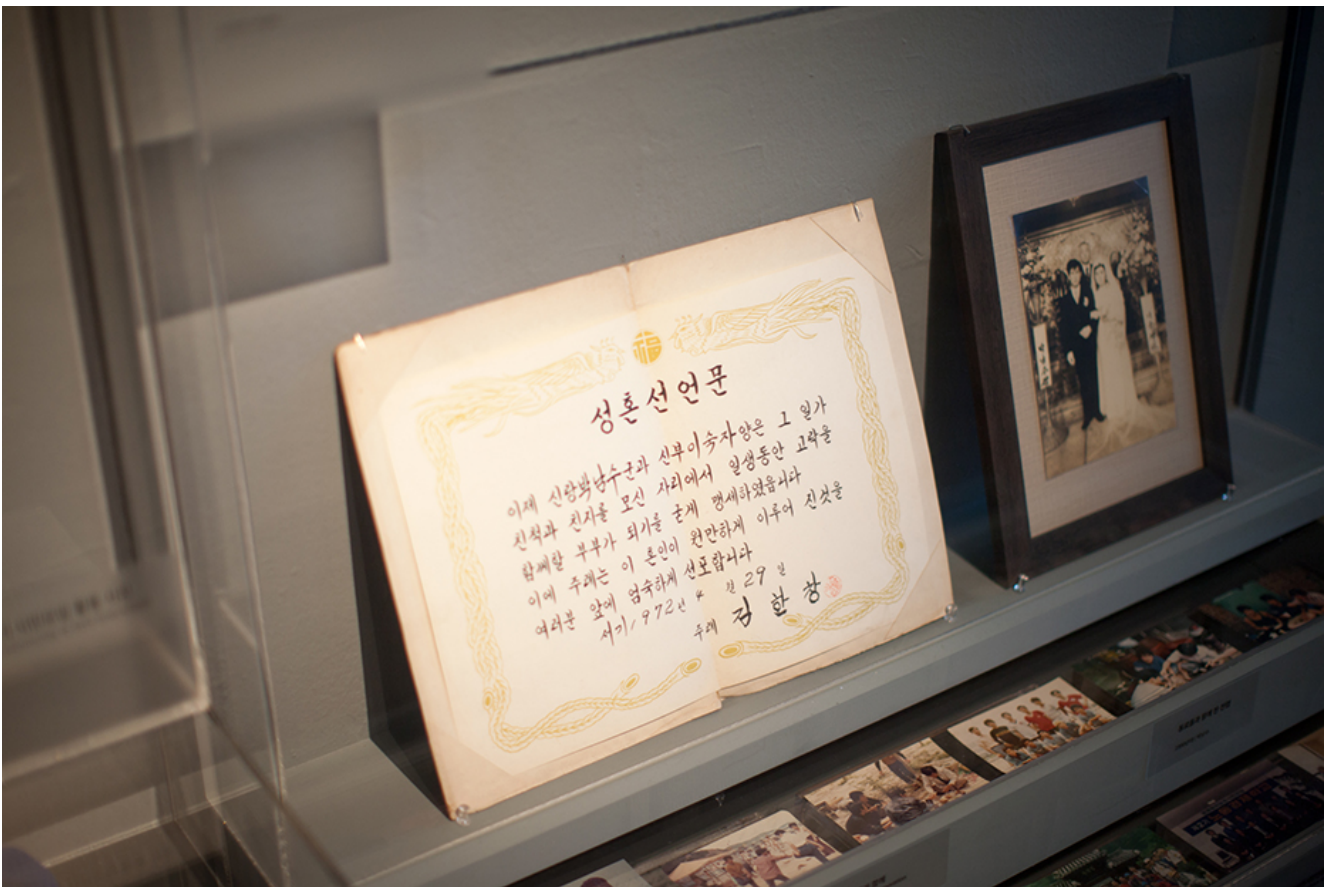 성혼선언문
이제 신랑박남수군과 신부이숙자양은 그 일가
친척과 친지를 모신 자리에서 일생동안 고락을
함께할 부부가 되기를 굳게 맹세하였읍니다
이에 주례는 이 혼인이 원만하게 이루어 진것을
여러분 앞에 엄숙하게 선포합니다
서기1972년 4월 29일
주례 김한창